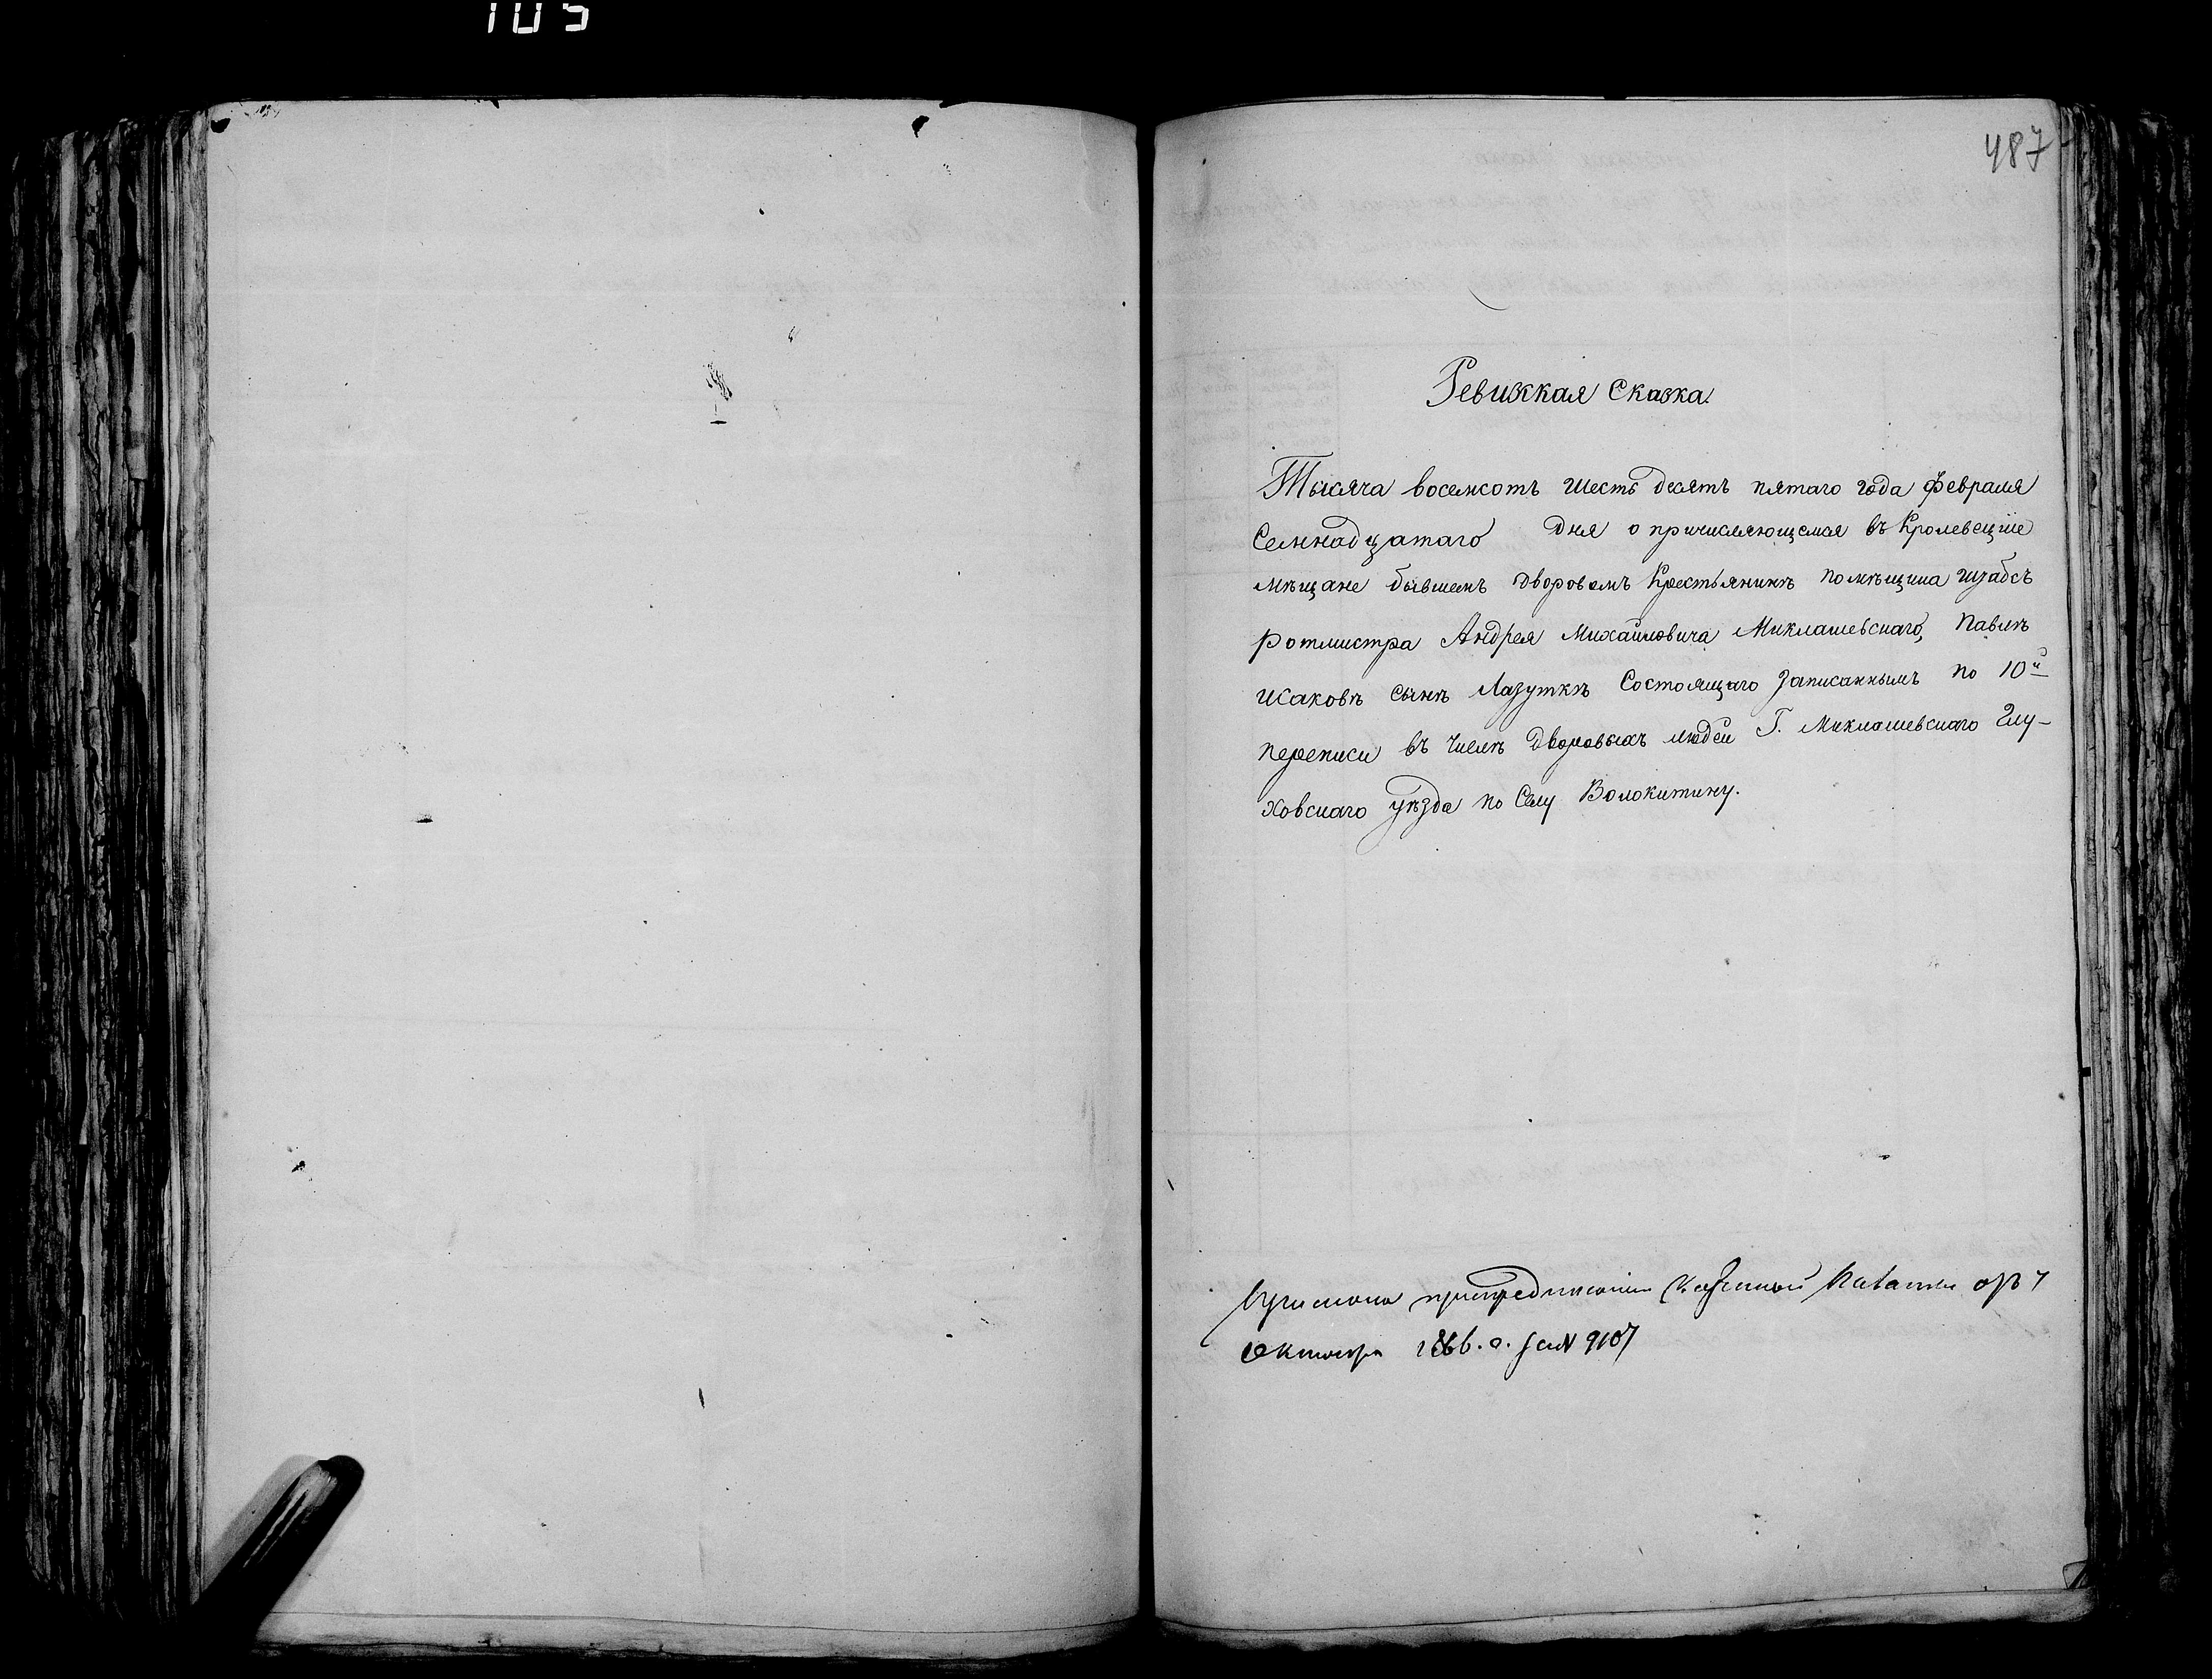 105
487
Ревизкая Сказка.
Тысяча восемсотъ шестьдесятъ пятаго года февраля
Семнадцатаго дня о причисляющемся въ Кролевецкіе
мѣщане бывшемъ дворовомъ Крестьянинѣ помѣщика штабсъ
ротмистра Андрея Михайловича Миклашевскаго, Павлѣ
Исаковѣ сынѣ Лазуткѣ Состоящаго записаннымъ по 10й
переписи въ числѣ дворовыхъ людей Г. Миклашевскаго Глу-
ховскаго уѣзда по Селу Волокитину.
при предписаніи Казенной Палаты отъ 7
Октября 1866. г. за N 9107